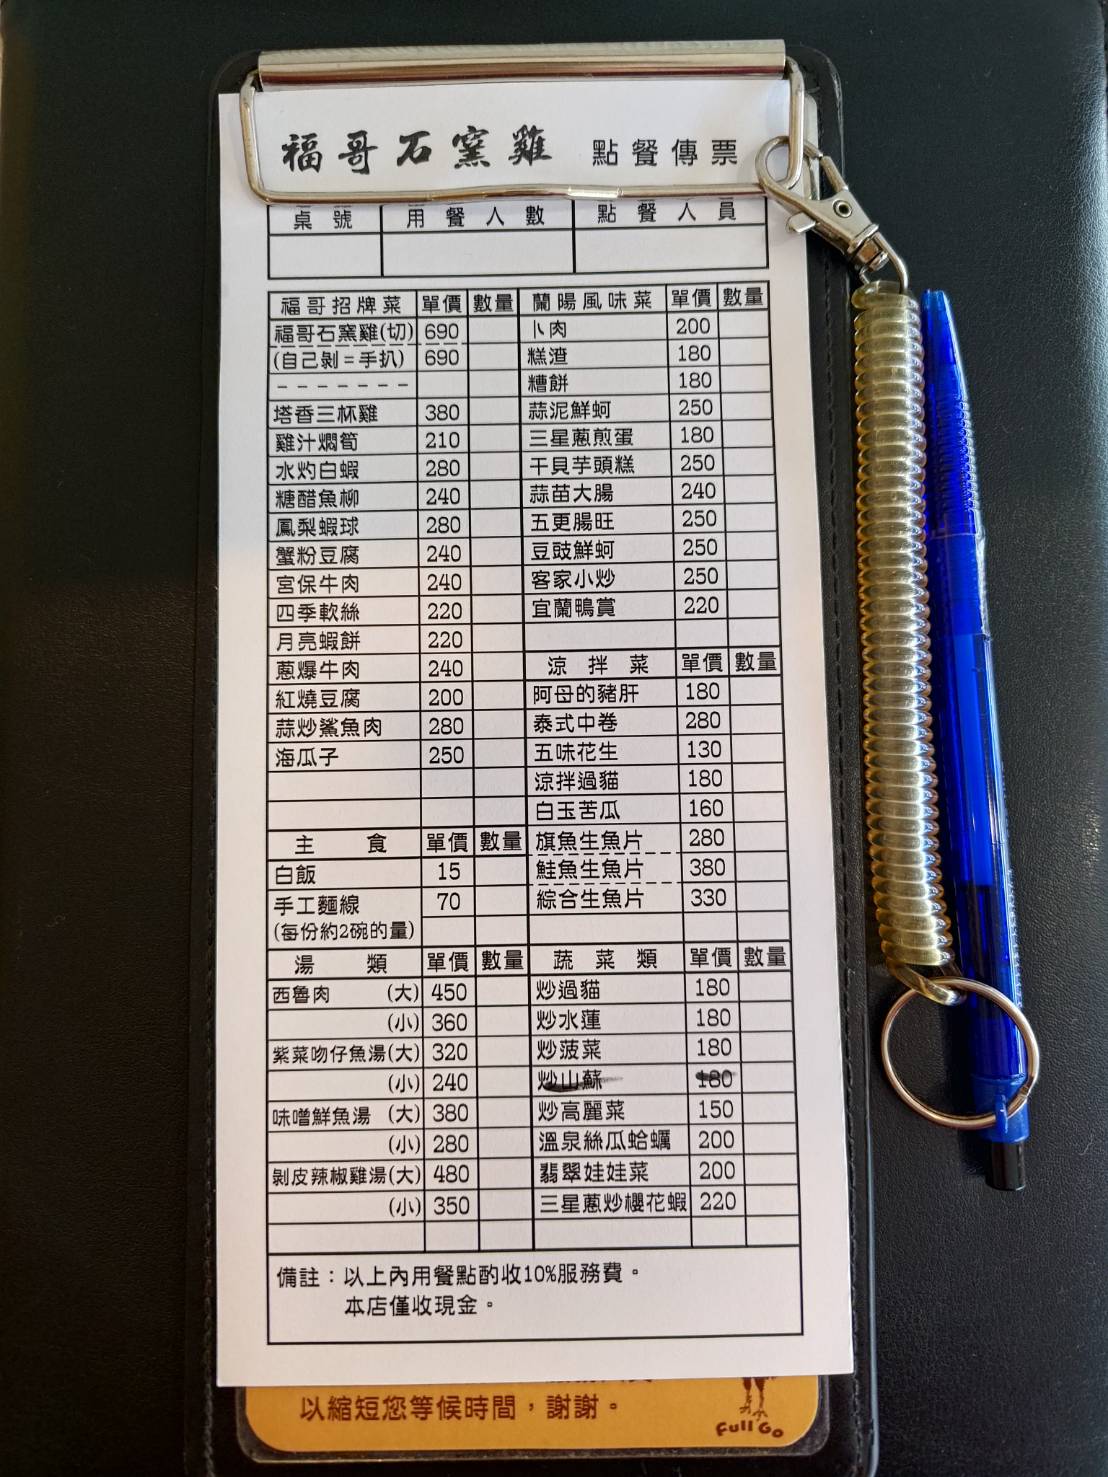 福哥石窯雞 點餐傳票
桌號 用餐人數 點餐人員
福哥招牌菜 單價 數量
福哥石窯雞(切) 690
(自己剝=手扒) 690
- - - - - - -
塔香三杯雞 380
雞汁燜筍 210
水灼白蝦 280
糖醋魚柳 240
鳳梨蝦球 280
蟹粉豆腐 240
宮保牛肉 240
四季軟絲 220
月亮蝦餅 220
蔥爆牛肉 240
紅燒豆腐 200
蒜炒鯊魚肉 280
海瓜子 250
主食 單價 數量
白飯 15
手工麵線 70
(每份約2碗的量)
湯類 單價 數量
西魯肉 (大) 450
(小) 360
紫菜吻仔魚湯(大) 320
(小) 240
味噌鮮魚湯 (大) 380
(小) 280
剝皮辣椒雞湯(大) 480
(小) 350
蘭陽風味菜 單價 數量
卜肉 200
糕渣 180
糟餅 180
蒜泥鮮蚵 250
三星蔥煎蛋 180
干貝芋頭糕 250
蒜苗大腸 240
五更腸旺 250
豆豉鮮蚵 250
客家小炒 250
宜蘭鴨賞 220
涼拌菜 單價 數量
阿母的豬肝 180
泰式中卷 280
五味花生 130
涼拌過貓 180
白玉苦瓜 160
旗魚生魚片 280
鮭魚生魚片 380
綜合生魚片 330
蔬菜類 單價 數量
炒過貓 180
炒水蓮 180
炒菠菜 180
炒山蘇 180
炒高麗菜 150
溫泉絲瓜蛤蠣 200
翡翠娃娃菜 200
三星蔥炒櫻花蝦 220
備註：以上內用餐點酌收10%服務費。
本店僅收現金。
以縮短您等候時間，謝謝。
Full Go